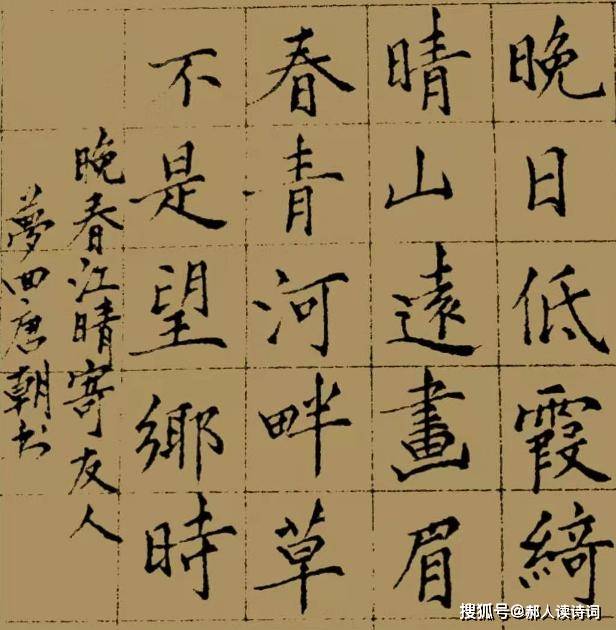 晚日低霞綺
晴山遠畫眉
春青河畔草
不是望鄉時
晚春江晴寄友人
夢回唐朝书
搜狐号@郝人读诗词